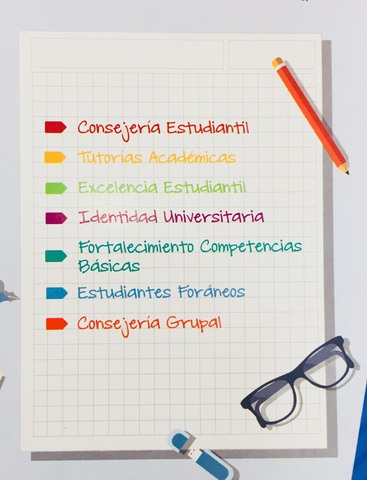 Consejería Estudiantil
Tutorías Académicas
Excelencia Estudiantil
Identidad Universitaria
Fortalecimiento Competencias
Básicas
Estudiantes Foráneos
Consejería Grupal